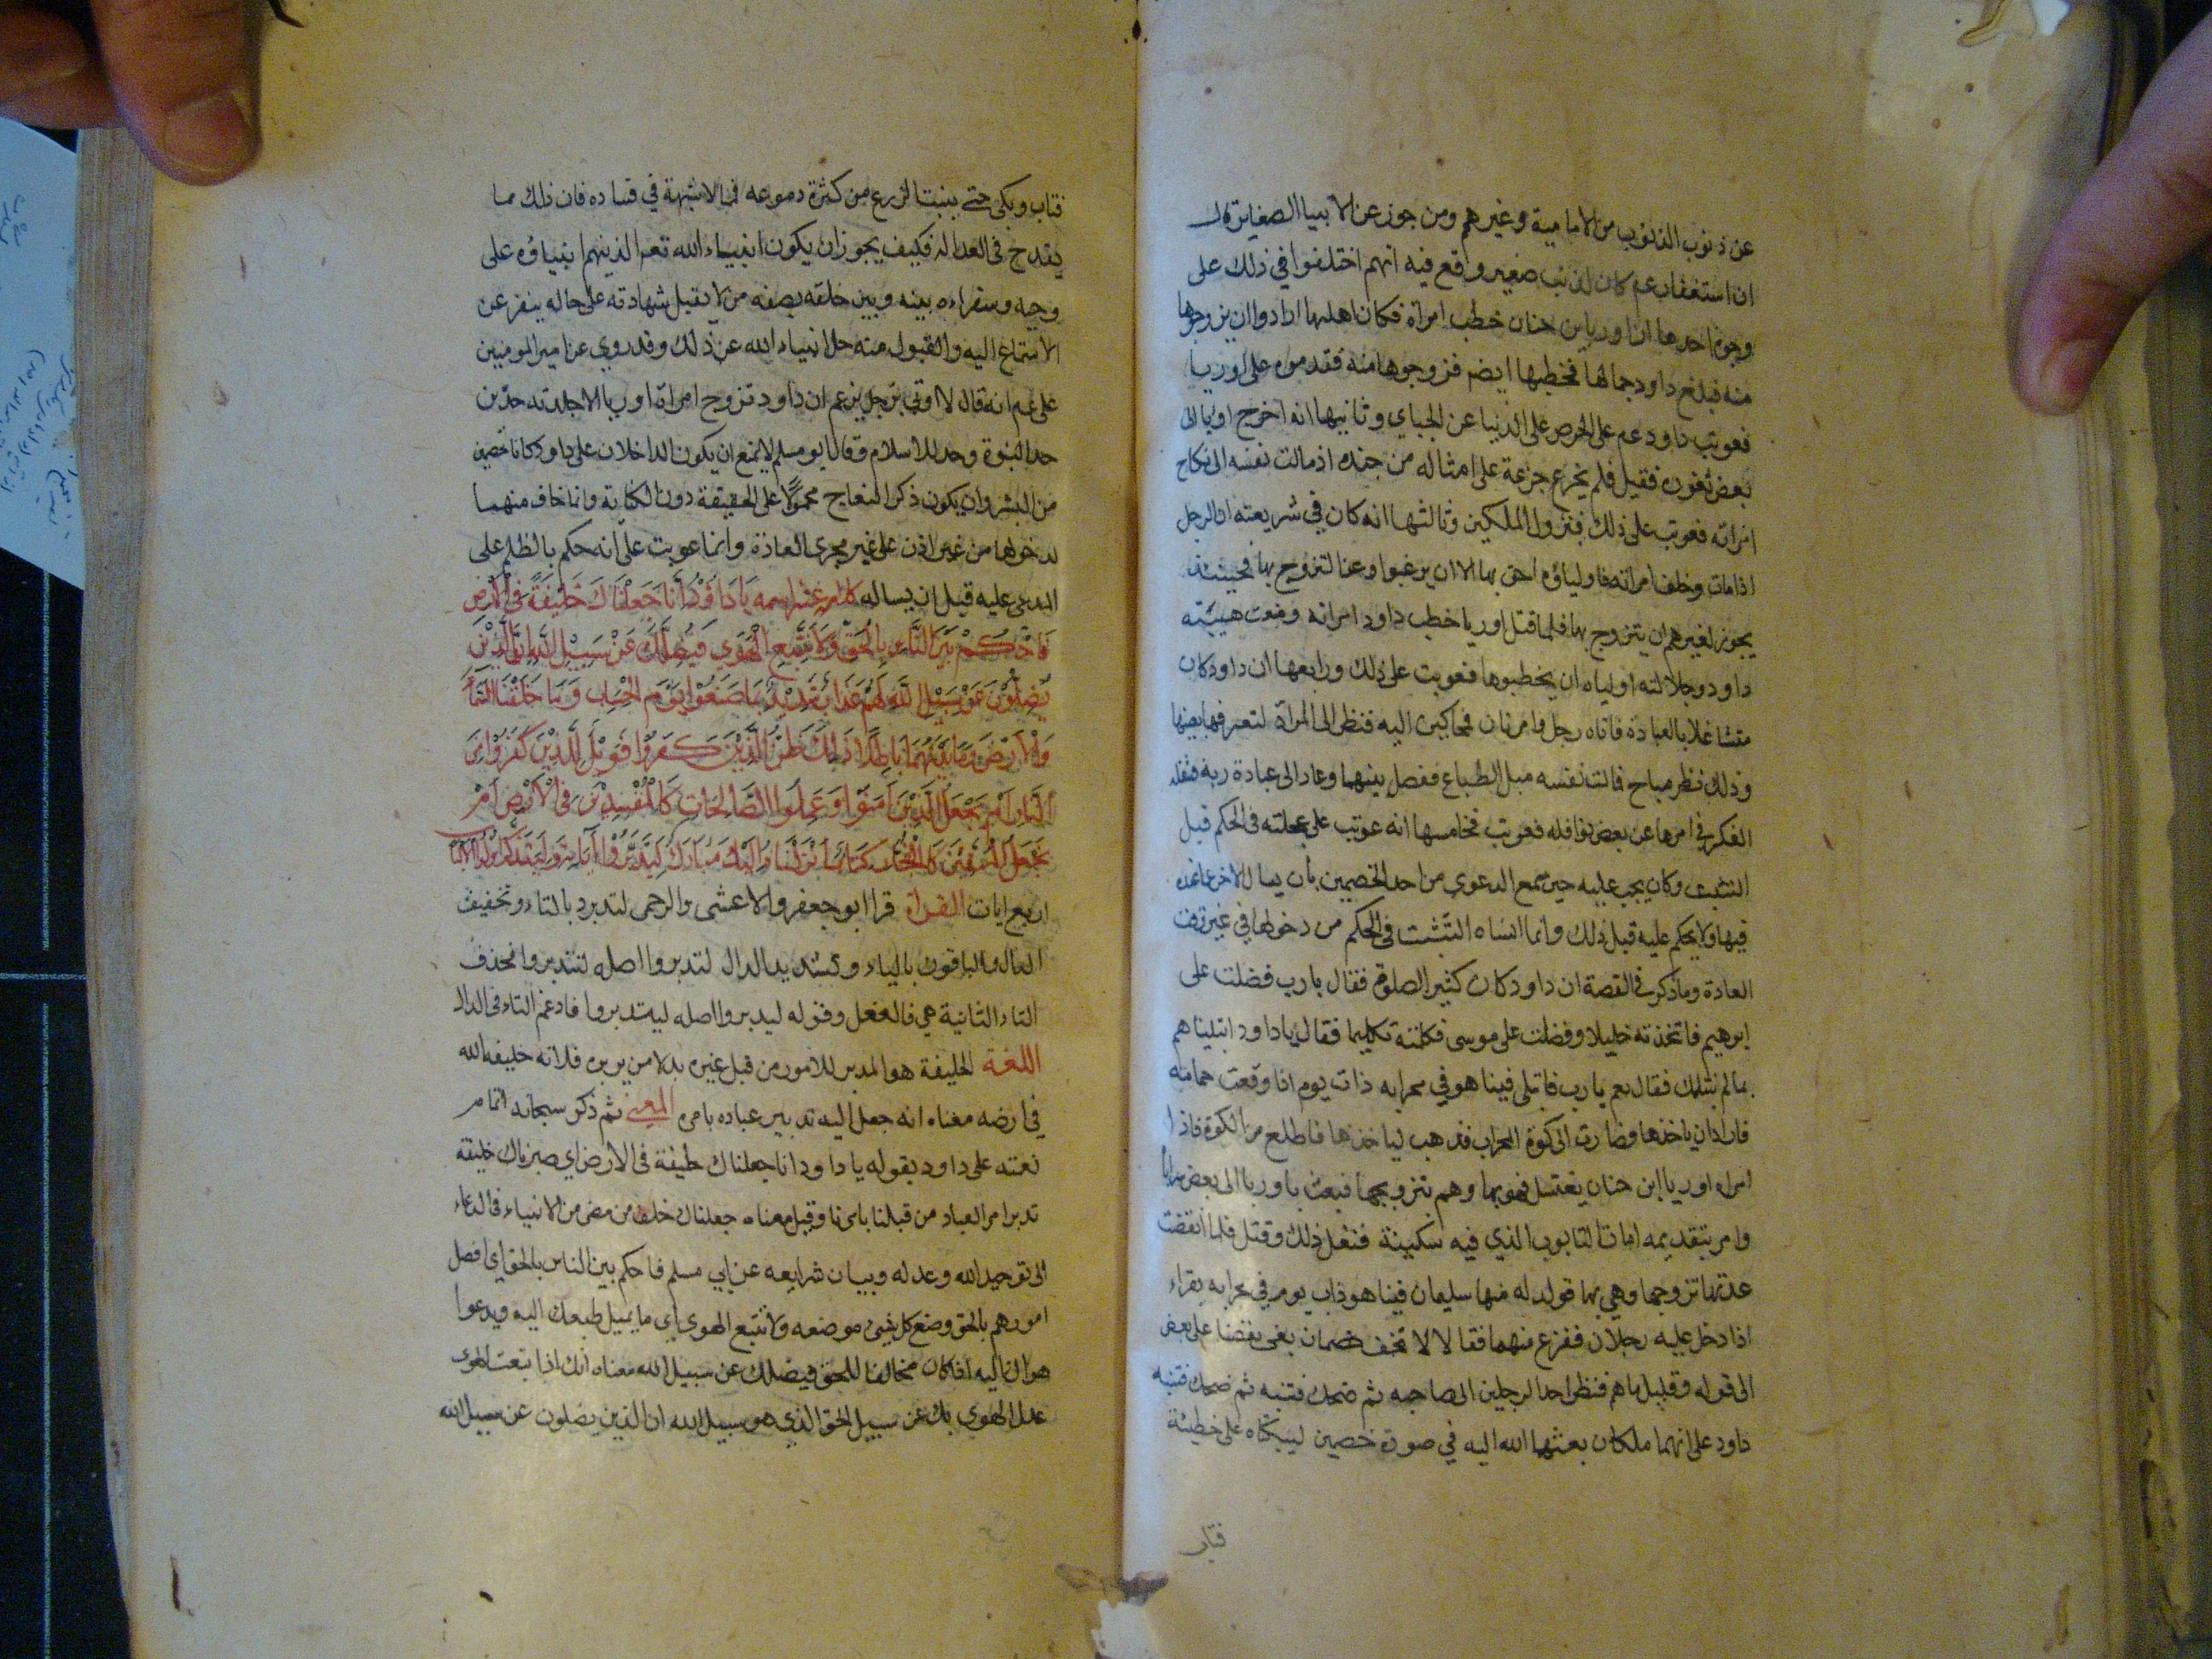 عن ذنوب الذنوب من الامامية وغيرهم ومن جوز عن الانبيا الصغاير قال
ان استغفاره عم كان لذنب صغير واقع فيه انهم اختلفوا في ذلك على
وجوه احدها ان اوريا بن حنان خطب امراة فكان اهلها ارادوا ان يزوجوها
منه فبلغ داود جمالها فخطبها ايضم فزوجوها منه فقدموه على اوريا
فعوتب داود عم على الحرص على الدنيا عن الجباي وثانيها انه اخرج اوريا الى
بعض ثغوره فقيل فلم يجزع جزعة على امثاله من جنده اذ مالت نفسه الى نكاح
امراته فعوتب على ذلك فنزوا الملكين وثالثها انه كان في شريعته ان الرجل
اذا مات وخلف امراته فاولياؤه احق بها الا ان يرغبوا عن التزوج بها فحينئذ
يجوز لغيرهم ان يتزوج بها فلما قتل اوريا خطب داود امراته ومنعت هيبته
داود وجلالته اولياه ان يخطبوها فعوتب على ذلك ورابعها ان داود كان
متشاغلا بالعبادة فاتاه رجل وامراتان فحاكمين اليه فنظر الى المراة لتعرفها بعينها
وذلك نظر مباح فمالت نفسه ميل الطباع ففصل بينهما وعاد الى عبادة ربه فشغله
الفكر في امرها عن بعض نوافله فعوتب فخامسها انه عوتب على عجلته في الحكم قبل
التثبت وكان يجب عليه حين سمع الدعوي من احد الخصمين بان يسال الاخر عما عنده
فيها ولا يحكم عليه قبل ذلك وانما انساه التثبت في الحكم من دخولها في غير وقت
العادة وما ذكر في القصة ان داود كان كثير الصلوة فقال يا رب فضلت على
ابرهيم فاتخذته خليلا وفضلت على موسى فكلمته تكليما فقال يا داود ابتليناهم
بما لم نبتلك فقال نعم يا رب فابتلى فبينا هو في محرابه ذات يوم اذا وقعت حمامه
فاراد ان ياخذها فطارت الى كوة المحراب فذهب لياخذها فاطلع من الكوة فاذا
امراه اوريا ابن حنان يغتسل فهويها وهم بتزويجها فبعث باوريا الى بعض سراياه
وامر بتقديمه امام التابوب الذي فيه سكينة ففعل ذلك وقتل فلما انقضت
عدتها تزوجها وهي بها فولد له منها سليمان فبينا هو ذات يوم في محرابه يقراء
اذا دخل عليه رجلان ففزع منهما فقالا لا تخف خصمان بغى بعضنا على بعض
الى قوله وقليل ماهم فنظر احد الرجلين الى صاحبه ثم ضحك فتنبه ثم ضحك فتنبه
داود على انهما ملكان بعثهما الله اليه في صورة خصمين ليبكتاه على خطيئة
فتاب
فتاب وبكى حتى ينبت الزرع من كثرة دموعه فمما لا شبهة في فساده فان ذلك مما
يقدح في العدالة فكيف يجوز ان يكون انبياء الله تعم الذينهم انبياؤه على
وحيه وسفراءه بينه وبين خلقه بصفه من لا يقبل شهادته على حاله ينفر عن
الاستماع اليه والقبول منه جل انبياء الله عن ذلك وقد روي عن امير المومنين
على عم انه قال لا اوتي برجل يزعم ان داود تزوج امراة اوريا الا جلدته حدين
حد النبوة وحد للاسلام وقال ابو مسلم لا يمتنع ان يكون الداخلان على داود كانا خصمين
من البشر وان يكون ذكر النعاج محمولا على الحقيقة دون الكناية وانما خاف منهما
لدخولهما من غير اذن على غير مجرى العادة وانما عوبت على انه حكم بالظلم على
المدعى عليه قبل ان يساله يَا دَاوُدُ أَنَا جَعَلْنَاكَ خَلِيفَةً فِي الْأَرْضِ
فَاحْكُمْ بَيْنَ النَّاسِ بِالْحَقِّ وَلَا تَتَّبِعِ الْهَوَى فَيُضِلَّكَ عَنْ سَبِيْلِ اللَّهِ إِنَّ الَّذِيْنَ
يُضِلُّوْنَ عَنْ سَبِيْلِ اللَّهِ لَهُمْ عَذَابٌ شَدِيْدٌ بِمَا صَنَعُوْا يَوْمَ الْحِسَابِ وَمَا خَلَقْنَا السَّمَآءَ
وَالْأَرْضَ وَمَا بَيْنَهُمَا بَاطِلًا ذَلِكَ ظَنُّ الَّذِيْنَ كَفَرُوْا فَوَيْلٌ لِلَّذِيْنَ كَفَرُوْا مِنَ
النَّارِ أَمْ نَجْعَلُ الَّذِيْنَ آمَنُوْا وَعَمِلُوا الصَّالِحَاتِ كَالْمُفْسِدِيْنَ فِي الْأَرْضِ أَمْ
نَجْعَلُ الْمُتَّقِيْنَ كَالْفُجَّارِ كِتَابٌ أَنْزَلْنَاهُ إِلَيْكَ مُبَارَكٌ لِيَدَّبَّرُوْا آيَاتِهِ وَلِيَتَذَكَّرَ أُولُوا الْأَلْبَابِ
اربع ايات القراة قرا ابو جعفر والاعشى والرجمى لتدبروا بالتاء وتخفيف
الدال والباقون بالياء وتشديد الدال لتدبروا اصله لتتدبروا فحذف
التاء الثانية هي فا الفعل وقوله ليدبروا اصله ليتدبروا فادغم التاء في الدال
اللغة الخليفة هو المدبر للامور من قبل غيره بدلا من يريده فلانه خليفة الله
في ارضه معناه انه جعل اليه تدبير عباده بامره المعنى ثم ذكر سبحانه اتمام
نعمته على داود بقوله يا داود انا جعلناك خليفة في الارض اي صيرناك خليفة
تدبر امر العباد من قبلنا بامرنا وقيل معناه جعلناك خلف من مضى من الانبياء في الدعاء
الى توحيد الله وعدله وبيان شرايعه عن ابي مسلم فاحكم بين الناس بالحق اي افصل
امورهم بالحق وضع كل شيئ موضعه ولا تتبع الهوى اي ما يميل طبعك اليه ويدعوا
هواك اليه اذا كان مخالفا للحق فيضلك عن سبيل الله معناه انك اذا تبعت الهوى
عدل الهوي بك عن سبيل الحق الذي هو سبيل الله ان الذين يضلون عن سبيل الله